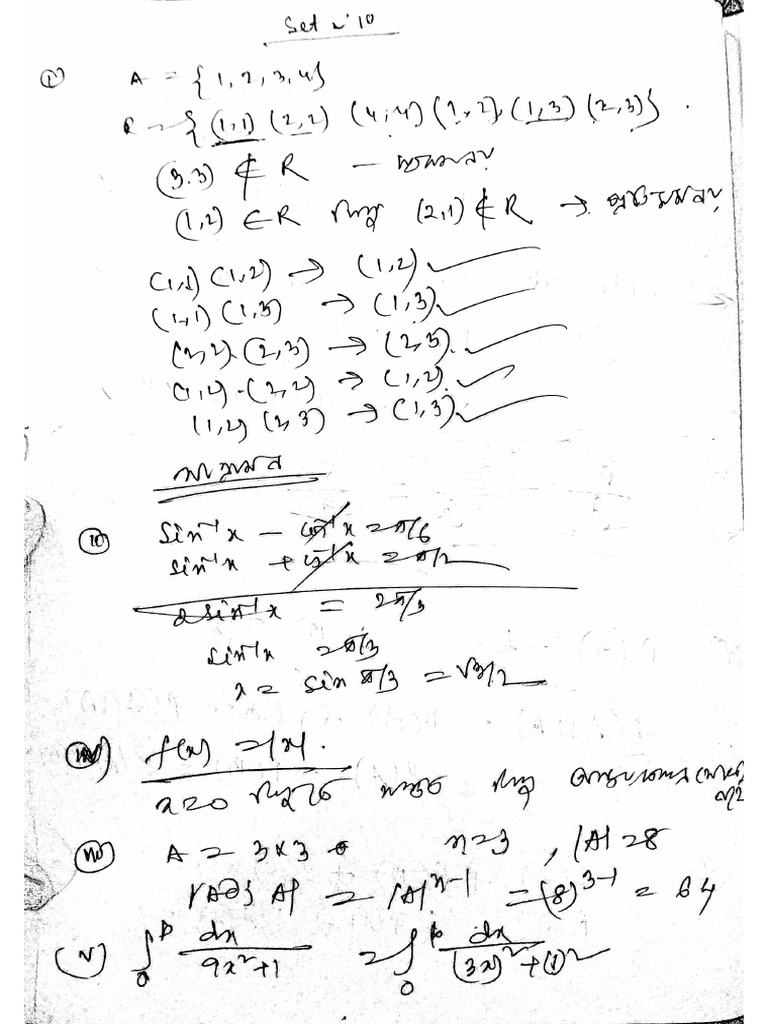 Set নং 10
(i) A = {1, 2, 3, 4}
R = {(1,1) (2,2) (4,4) (1,2), (1,3) (2,3)}.
(3.3) ∉ R –
(1,2) ∈ R কিন্তু (2,1) ∉ R →
(1,1) (1,2) → (1,2) ✓
(1,1) (1,3) → (1,3) ✓
(2,2) (2,3) → (2,3). ✓
(1,2) - (2,2) → (1,2). ✓
(1,2) (2,3) → (1,3) ✓
sin⁻¹x – cos⁻¹x = π/6
sin⁻¹x + cos⁻¹x = π/2
2sin⁻¹x = 2π/3
sin⁻¹x = π/3
x = sin π/3 = √3/2
f(x) = |x|.
x = 0 বিন্দুতে সন্তত কিন্তু
A = 3×3 n = 3, |A| = 8
|Adj A| = |A|ⁿ⁻¹ = (8)³⁻¹ = 64
(v) ∫₀ᵖ dx/(9x²+1) = ∫₀ᵖ dx/((3x)²+(1)²)